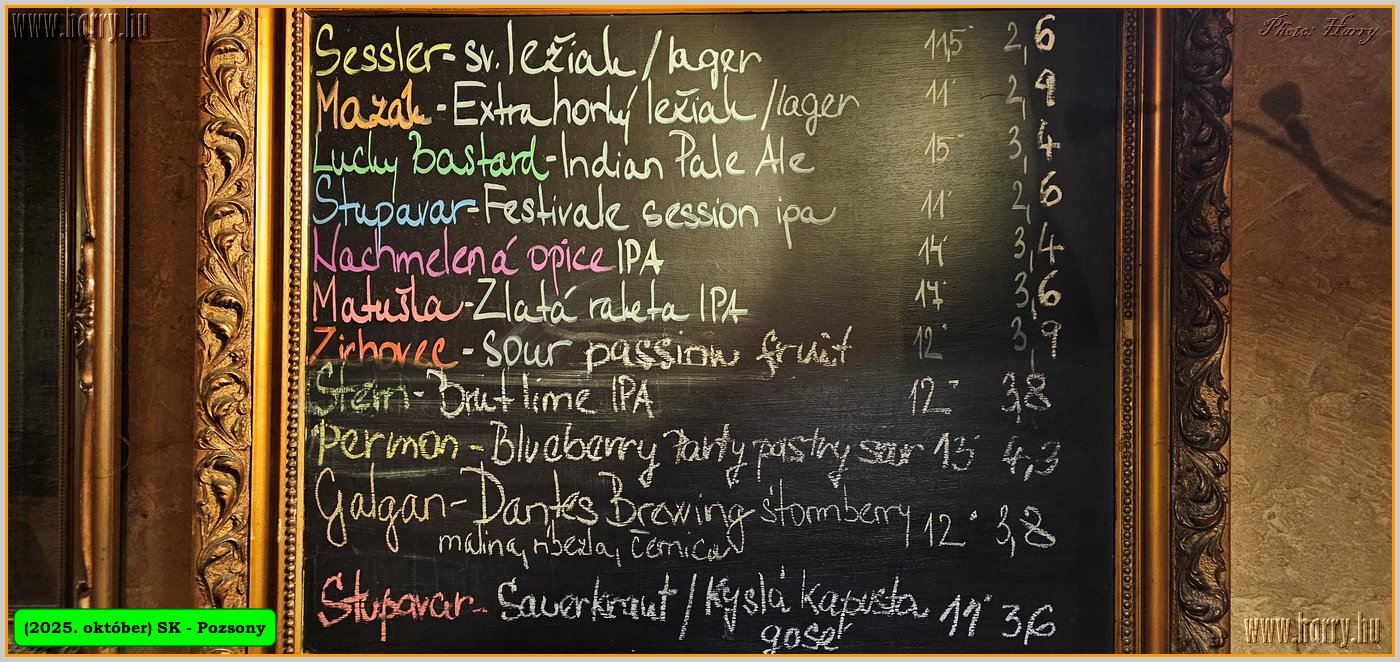 www.harry.hu
Photo: Harry
Sessler - sv. ležiak / lager 11,5° 2,6
Mazák - Extra horký ležiak / lager 11° 2,9
Lucky Bastard - Indian Pale Ale 15° 3,4
Stupavar - Festivale session ipa 11° 2,6
Nachmelená opice IPA 14° 3,4
Matuška - Zlatá raketa IPA 17° 3,6
Zichovec - sour passion fruit 12° 3,9
Stern - Brut lime IPA 12° 3,8
Permon - Blueberry Party pastry sour 13° 4,3
Galgan - Dantes Brewing stormberry 12° 3,8
malina, ríbezla, černica
Stupavar - Sauerkraut / kyslá kapusta 11° 3,6
gose
(2025. október) SK - Pozsony
www.harry.hu